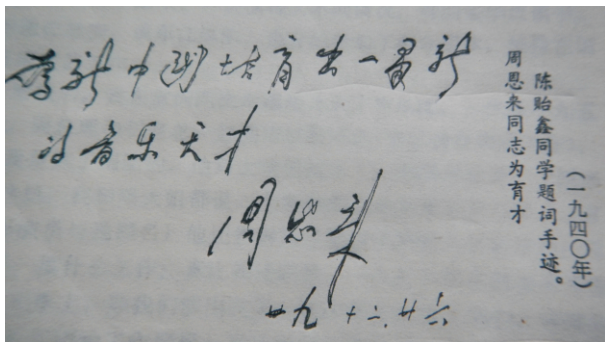 為新中國培育出一羣新
的音乐天才
周恩来
廿九、十二、廿六
周恩来同志为育才
陈贻鑫同学题词手迹。
（一九四〇年）